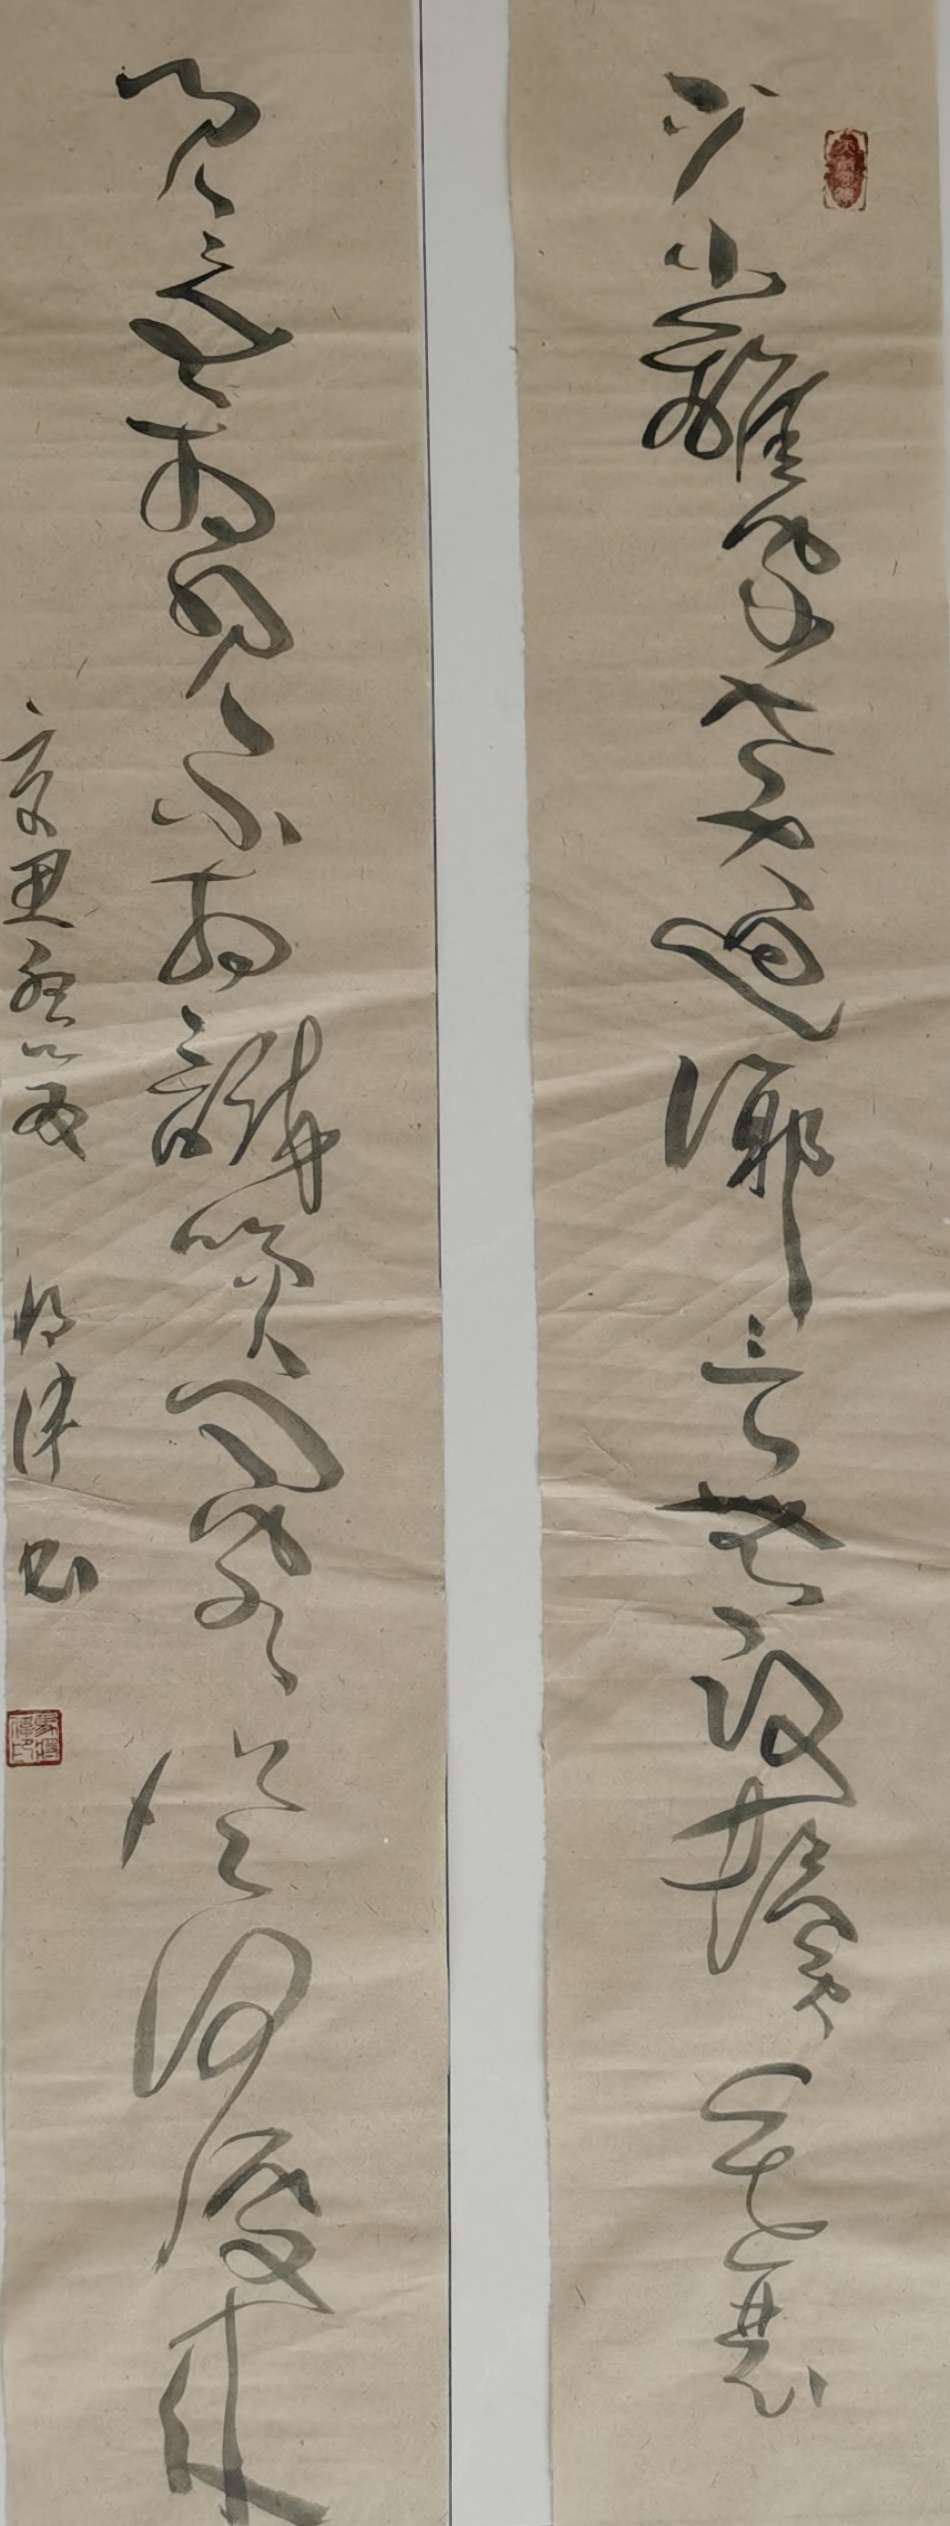 少小離家老大迴鄉音無改鬢毛衰
兒童相見不相識笑問客從何處來
辛丑
書